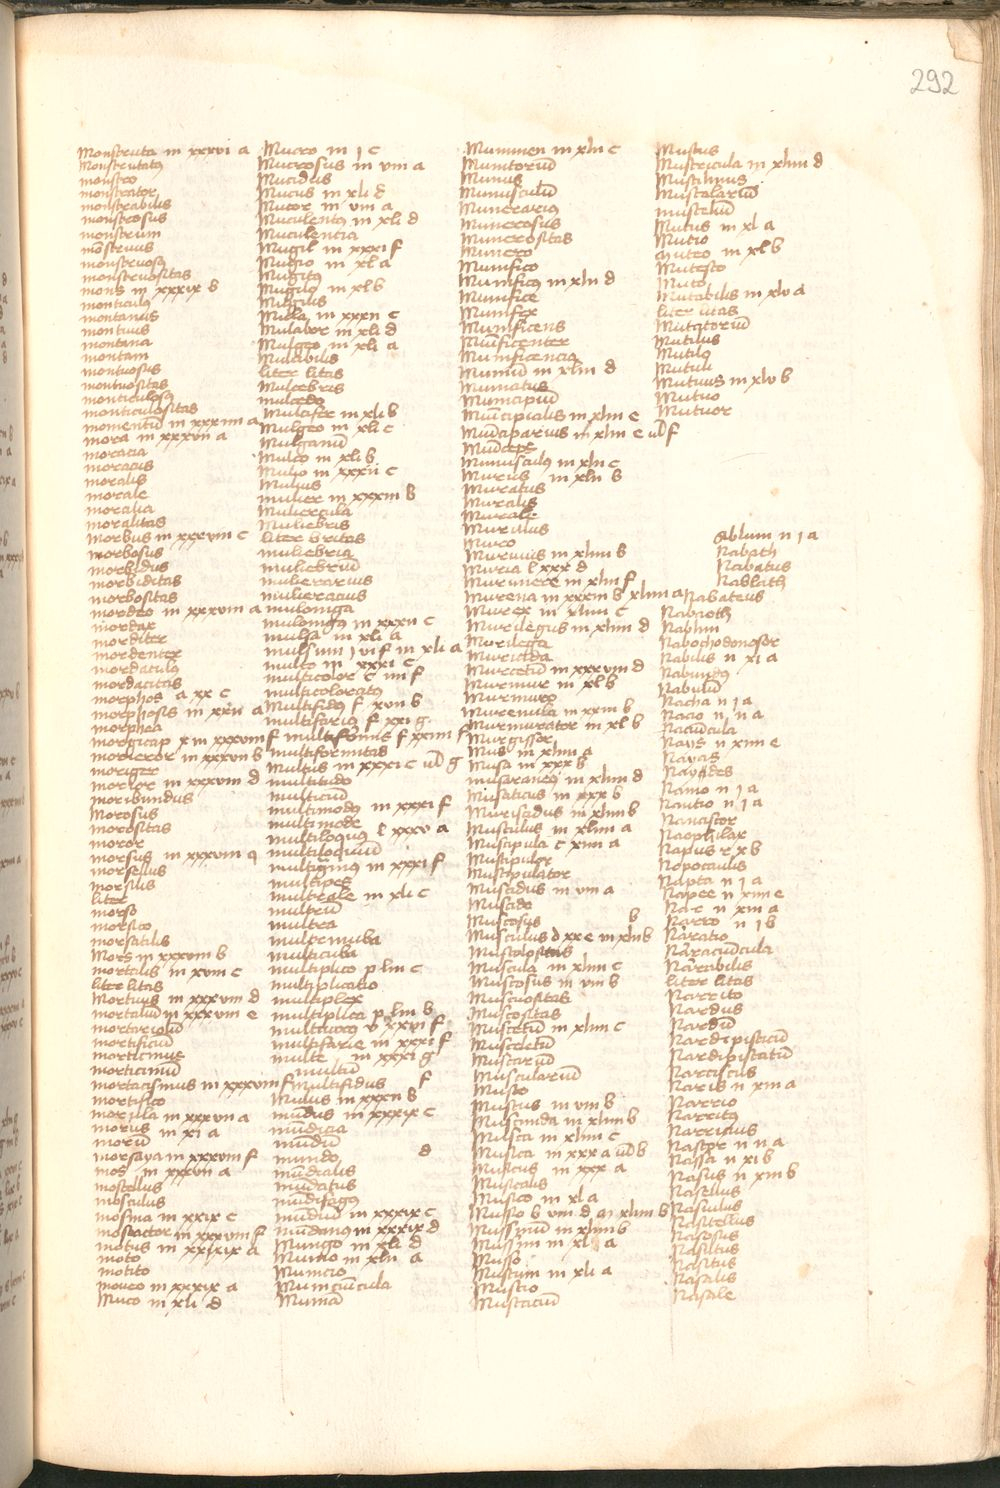 292
Monstruta m xxxvi a
Monstrutatꝯ
monstro
monstrator
monstrabilis
monstrosus
monstrum
mōstruus
monstruosꝯ
monstruositas
mons m xxxix b
monticulꝯ
montanus
montuus
montana
montam
montuosus
montuositas
monticulosꝯ
monticulositas
momentū m xxxviii a
mora m xxxvii a
moracia
moracus
moralis
morale
moralia
moralitas
Morbus m xxxviii c
morbosus
morbidus
morbiditas
morbositas
mordeo m xxxviii a
mordax
morditer
mordenter
mordatulꝯ
mordacitas
morphos a xx c
morphosis m xxii a
morphea
morigeror m xxxvii b
moriger
morior m xxxviii d
moribundus
Morosus
morositas
moror
morsus m xxxviii
morsellus
morsilis
liter
morso
morsico
morsatilis
Mors m xxxviii b
mortalis m xviii c
liter litas
Mortuus m xxxviii d
mortaliū m xxxviii e
mortariolū
mortificiū
morticinus
morticiniū
mortacismus m xxxviii f
mortifico
morula m xxxvii a
morus m xi a
morū
morsaya m xxxviii f
mos m xxxvii a
mostellus
mosculus
mosina m xxix c
mostacior m xxxviii f
motus m xxxix a
moto
motito
moveo m xxxix a
Muco m xli d
Mucro m j c
Mucrosus m viii a
Mucidus
Mucus m xli d
Mucor m viii a
Muculentꝯ m xli d
Muculentia
Mugil m xxxi f
Mugio m xl a
Mugitꝯ
Mugilꝯ m xl b
Mugilis
Mula m xxxii c
Mulabor m xli d
Mulgeo m xli a
Mulcibilis
liter litas
Mulcebris
mulcedo
Mulcifer m xli b
Mulgeo m xli c
Mulganū
Mulco m xli b
Mulio m xxxii c
Mulius
mulier m xxxiii b
Muliercula
Muliebris
liter britas
muliebria
muliebriū
mulierarius
mulieracus
mulomga
mulomgꝯ m xxxii c
mulsa m xli a
mulsum j vi f m xli a
multo m xxxi c
multicolor c iiii f
multicoloratꝯ
Multifidꝯ f xvii b
multifariꝯ f xxi g
multiformis f xxiiii f
multiformitas
Multus m xxxi c vl g
multitudo
multiciū
multimodꝯ m xxxi f
multimode
multiloquꝯ l xxxv a
multiloquiū
multigenus m xxxi f
multipes
multrale m xli c
multrū
multra
multimula
multicuba
multiplico p liii c
multiplicatio
multiplex
multiplica p liii b
multivocꝯ v xxvi f
multifarie m xxxi f
multe m xxxi g
multū
multifidus f
Mulus m xxxii b
mūdus m xxxix c
mūdicia
mūdiū
mundo d
mūdialis
mūdatus
mūdifagꝯ
mūdiū m xxxix c
mūdanꝯ m xxxix d
Mungo m xli d
Munio m xlii a
Muncio
Munciūcula
Munia
Munimen m xlii c
Munitoriū
Munus
Munusculū
Munerariꝯ
Munerosus
Munerositas
Munero
Munifico
Munificꝯ m xlii d
Munifice
Munifex
Munificens
Mūificenter
Munificencia
Muniū m xliii d
Muniatus
Municipiū
Mūicipialis m xliii e
Mūiciparius m xliii e vl f
Mūiceps
Munusculꝯ m xlii c
Murus m xlii b
Muratus
Muralis
Murale
Murulus
Muro
Murmus m xliii b
Muria l xxx d
Murmure m xliii f
Murena m xxxiii b xliiii a
Murex m xliiii c
Murilegus m xliiii d
Murilega
Muricida
Murcetū m xxxviii d
Murmur m xl b
Murmuro
Murenula m xxiii b
Murmurator m xl b
Murgissor
Mus m xliiii a
Musa m xxx b
musaraneꝯ m xliiii d
Musaticus m xxx b
Muriscidus m xliiii b
Musculus m xliiii a
Muscipula c xiiii a
Muscipulor
Muscipulator
Muscidus m viii a
Muscido
Muscosus b
Musculus d xx e m xliiii b
Musculositas
Muscula m xliiii c
Muscosus m viii b
Muscuositas
Muscositas
Muscetū m xliiii c
Musceletū
Muscariū
Muscularium
Musto
Mustus m viii b
Muscinda m xliiii b
Musca m xliiii c
Musica m xxx a vl b
Musicus m xxx a
Musicalis
Musico m xl a
Musso b viii d m xliiii b
Mussiniū m xliiii b
Mussim m xl a
Musso
Mustum m xli a
Mustio
Mustaciū
Mustus
Mustricula m xliiii d
Mustilinus
Mustalariū
mustaliū
Mutus m xl a
Mutio
Muteo m xl b
Mutesco
Muto
Mutabilis m xlv a
liter litas
Mutatoriū
Mutilus
Mutilo
Mutuli
Mutuus m xlv b
Mutuo
Mutuor
Nablum n j a
Nabath
Nabatus
Nablath
Nabateus
Naboth
Nabim
Nabochodonosor
Nabilis n xi a
Nabundꝯ
Nabulū
Nacha n j a
Nacio n ii a
Naciūcula
Nays n xiiii e
Nayas
Nayades
Namo n j a
Nantio n j a
Nanciscor
Naophilax
Napus r x b
Nopocaulis
Napta n j a
Napee n xiiii e
Nar n xiii a
Narro n j b
Narratio
Narraciūcula
Narrabilis
liter litas
Narrito
Nardus
Nardū
Nardipisticū
Nardipistatū
Narciscus
Naris n xiii a
Narrio
Narritꝯ
Narridus
Nascor n ii a
Nassa n xi b
Nasus n xiii b
Nasellus
Nasulus
Nasitellus
Nasosus
Nasutus
Nasitus
Nasalis
Nasale